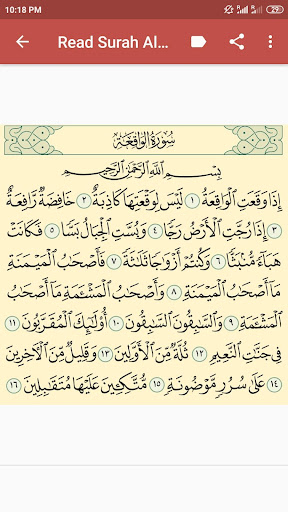 10:18 PM
Read Surah Al...
سُورَةُ الوَاقِعَةِ
بِسْمِ اللَّهِ الرَّحْمَٰنِ الرَّحِيمِ
إِذَا وَقَعَتِ الْوَاقِعَةُ ١ لَيْسَ لِوَقْعَتِهَا كَاذِبَةٌ ٢ خَافِضَةٌ رَّافِعَةٌ
٣ إِذَا رُجَّتِ الْأَرْضُ رَجًّا ٤ وَبُسَّتِ الْجِبَالُ بَسًّا ٥ فَكَانَتْ
هَبَاءً مُّنْبَثًّا ٦ وَكُنتُمْ أَزْوَاجًا ثَلَاثَةً ٧ فَأَصْحَابُ الْمَيْمَنَةِ
مَا أَصْحَابُ الْمَيْمَنَةِ ٨ وَأَصْحَابُ الْمَشْئَمَةِ مَا أَصْحَابُ
الْمَشْئَمَةِ ٩ وَالسَّابِقُونَ السَّابِقُونَ ١٠ أُولَٰئِكَ الْمُقَرَّبُونَ ١١
فِي جَنَّاتِ النَّعِيمِ ١٢ ثُلَّةٌ مِّنَ الْأَوَّلِينَ ١٣ وَقَلِيلٌ مِّنَ الْآخِرِينَ
١٤ عَلَىٰ سُرُرٍ مَّوْضُونَةٍ ١٥ مُّتَّكِئِينَ عَلَيْهَا مُتَقَابِلِينَ ١٦